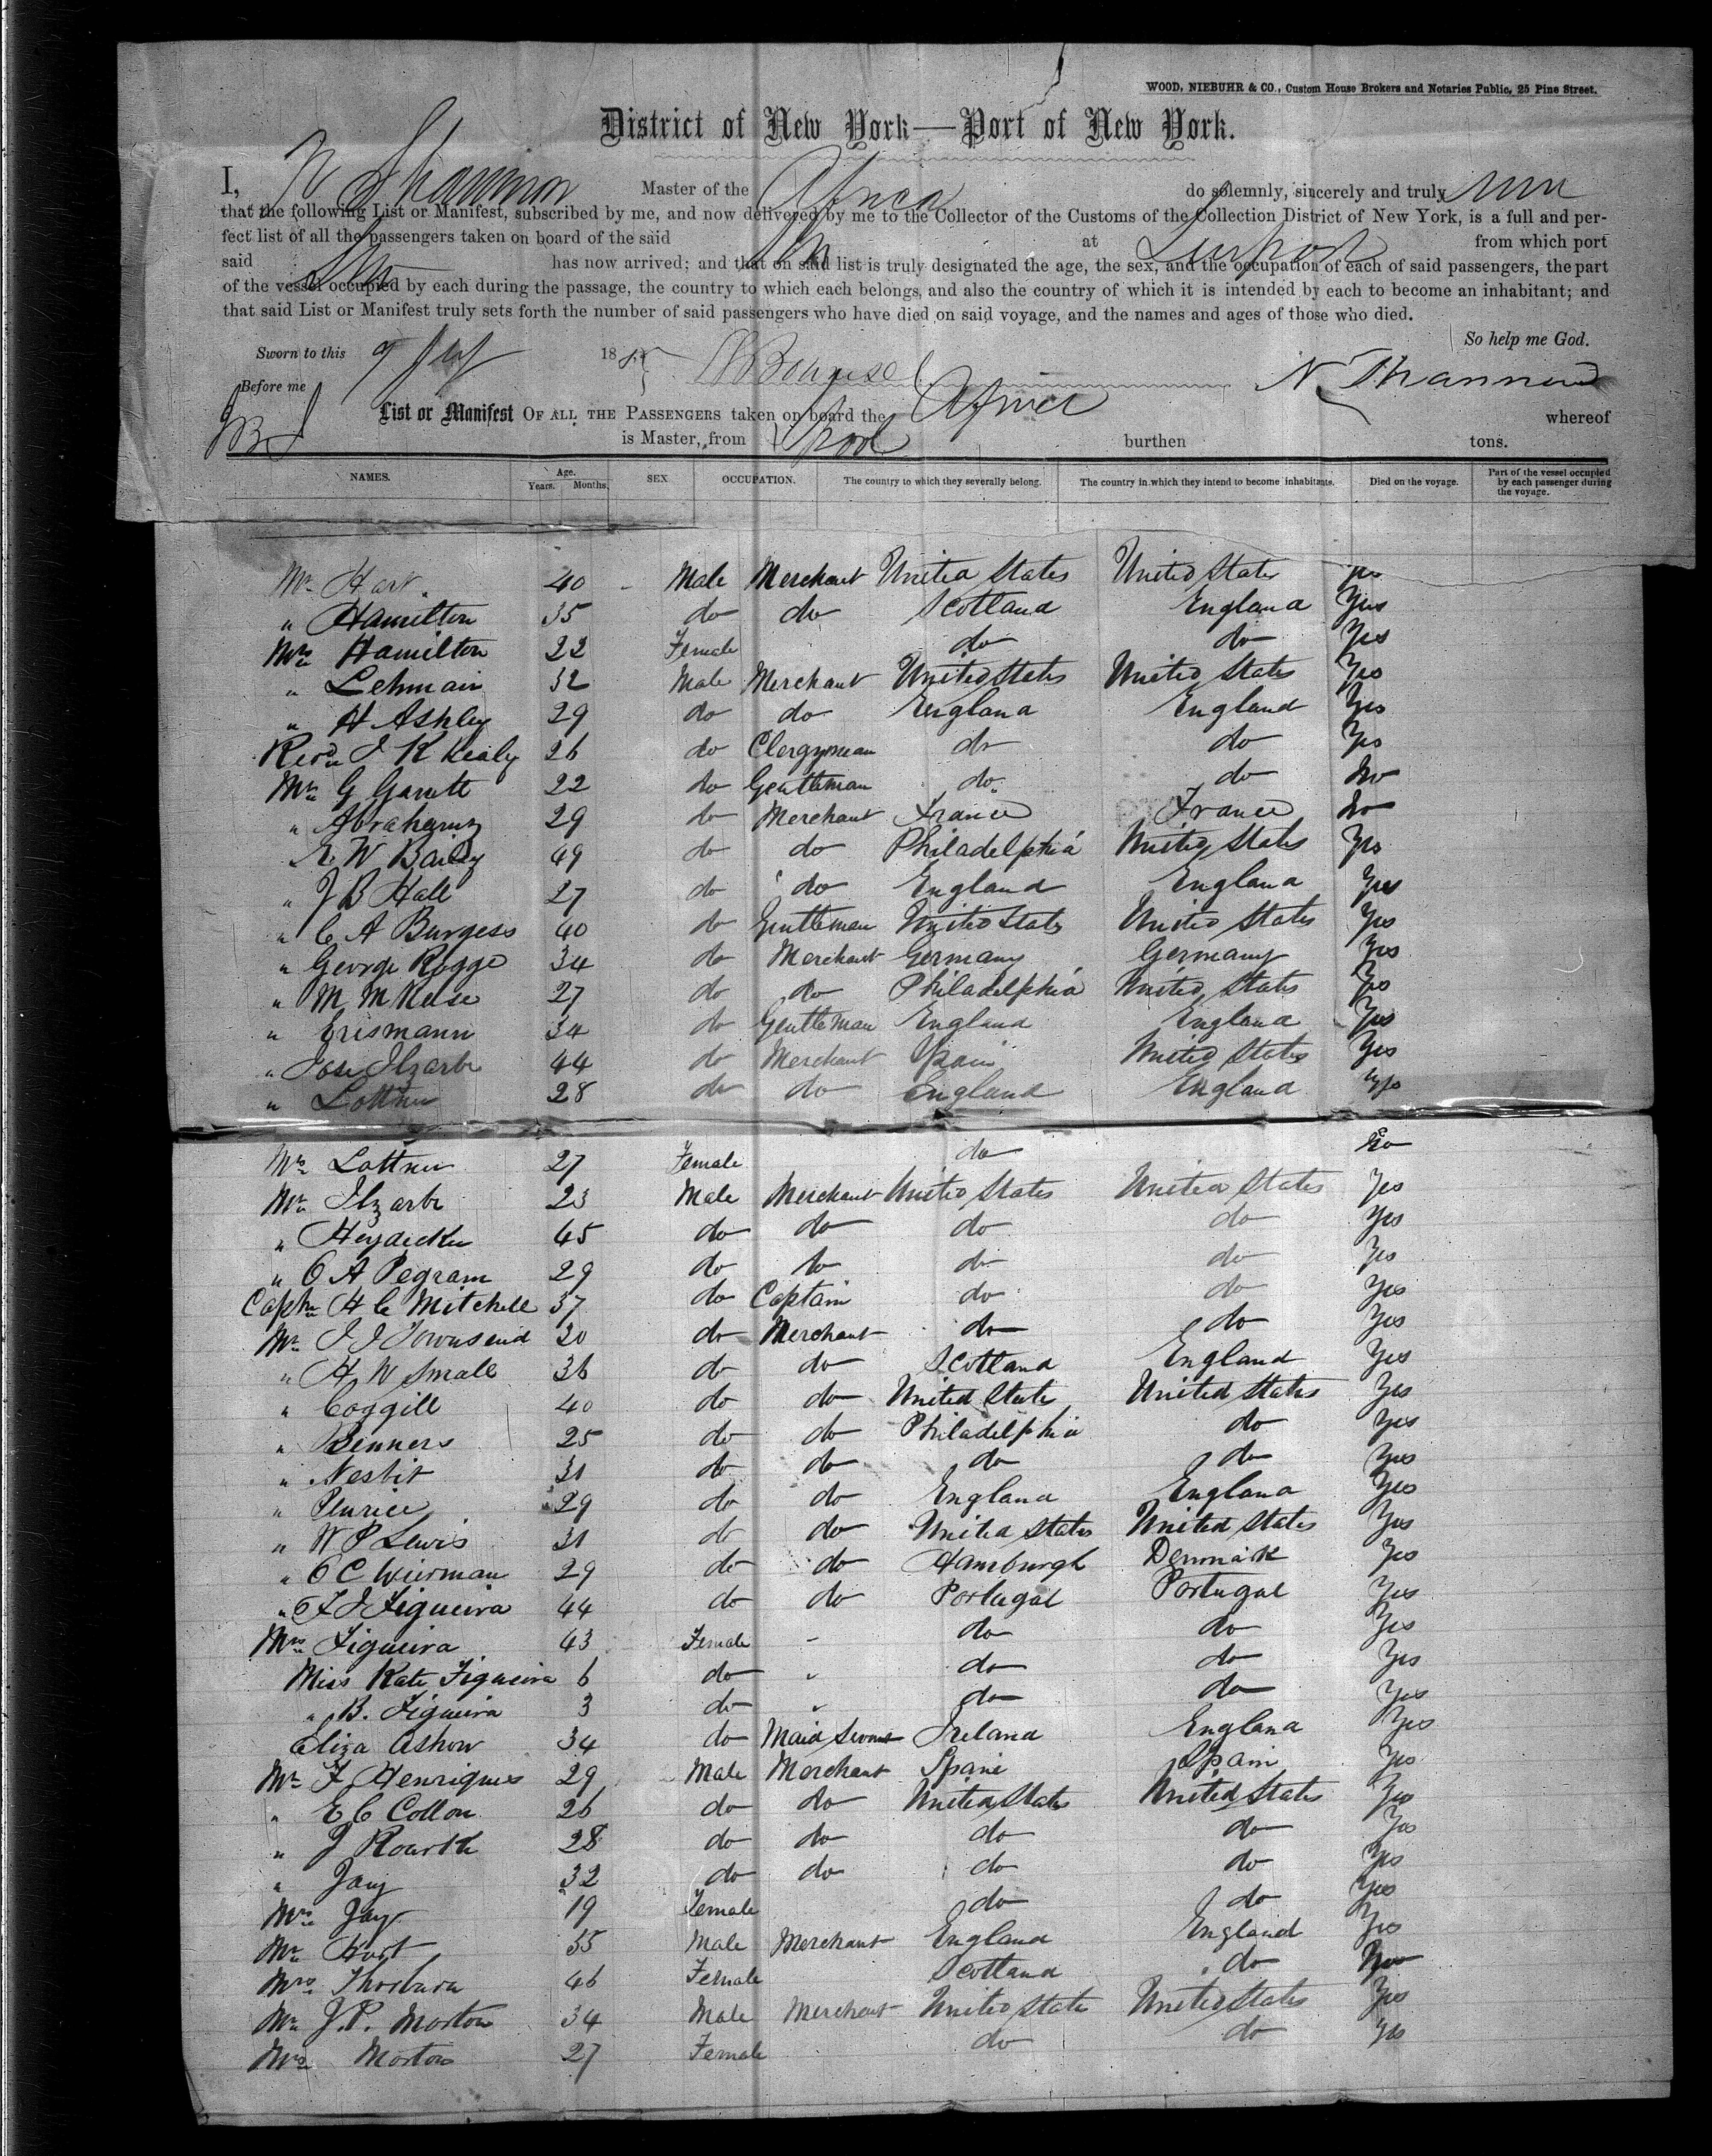 WOOD, NIEBUHR & CO., Custom House Brokers and Notaries Public, 25 Pine Street.
District of New York—Port of New York.
I, N Shannon Master of the Africa do solemnly, sincerely and truly
that the following List or Manifest, subscribed by me, and now delivered by me to the Collector of the Customs of the Collection District of New York, is a full and per-
fect list of all the passengers taken on board of the said at Liverpool from which port
said has now arrived; and that on said list is truly designated the age, the sex, and the occupation of each of said passengers, the part
of the vessel occupied by each during the passage, the country to which each belongs, and also the country of which it is intended by each to become an inhabitant; and
that said List or Manifest truly sets forth the number of said passengers who have died on said voyage, and the names and ages of those who died.
So help me God.
Sworn to this 9 18
Before me N Shannon
List or Manifest OF ALL THE PASSENGERS taken on board the Africa whereof
is Master, from Lpool burthen tons.
NAMES. Age. Years. Months. SEX OCCUPATION. The country to which they severally belong. The country in which they intend to become inhabitants. Died on the voyage. Part of the vessel occupied by each passenger during the voyage.
Mr Hart 40 Male Merchant United States United States yes
" Hamilton 35 do do Scotland England Yes
Mrs Hamilton 22 Female do do Yes
" Lehmair 32 Male Merchant United States United States Yes
" H Ashley 29 do do England England Yes
Revd J K Kealy 26 do Clergyman do do Yes
Mr G Garett 22 do Gentleman do do No
" 29 do Merchant France France No
E. W Baily 49 do do Philadelphia United States Yes
" J B Hall 27 do do England England Yes
" C A Burgess 40 do Gentleman United States United States Yes
" George Rogge 34 do Merchant Germany Germany Yes
" M McKese 27 do do Philadelphia United States Yes
" Erismann 34 do Gentleman England England Yes
" Jose Ilzarbe 44 do Merchant Spain United States Yes
" Lottner 28 do do England England Yes
Mrs Lottner 27 Female do
Mr Ilzarbe 23 Male Merchant United States United States Yes
" Heydecker 45 do do do do Yes
" O A Pegram 29 do do do do Yes
Captn H C Mitchell 37 do Captain do do Yes
Mr J J Townsend 20 do Merchant do do Yes
" H W Small 36 do do Scotland England Yes
" Coggill 40 do do United State United States Yes
" Benners 25 do do Philadelphia do Yes
" Nesbit 31 do do do do Yes
" Penrice 29 do do England England Yes
" W P Lewis 31 do do United States United States Yes
" O C Wierman 29 do do Hamburgh Denmark Yes
" F J Figueira 44 do do Portugal Portugal Yes
Mrs Figueira 43 Female - do do Yes
Miss Kate Figueira 6 do " do do Yes
" B. Figueira 3 do " do do Yes
Eliza Ashow 34 do Maid Servant Ireland England Yes
Mr F Henriques 29 Male Merchant Spain Spain Yes
" E C Collon 26 do do United States United States Yes
" J Rourth 28 do do do do Yes
" Jay 32 do do do do Yes
Mrs Jay 19 Female do do Yes
Mr Hurt 35 Male Merchant England England Yes
Mrs Thorburn 46 Female Scotland do
Mr J. P. Morton 34 Male Merchant United State United States Yes
Mrs Morton 27 Female do do Yes